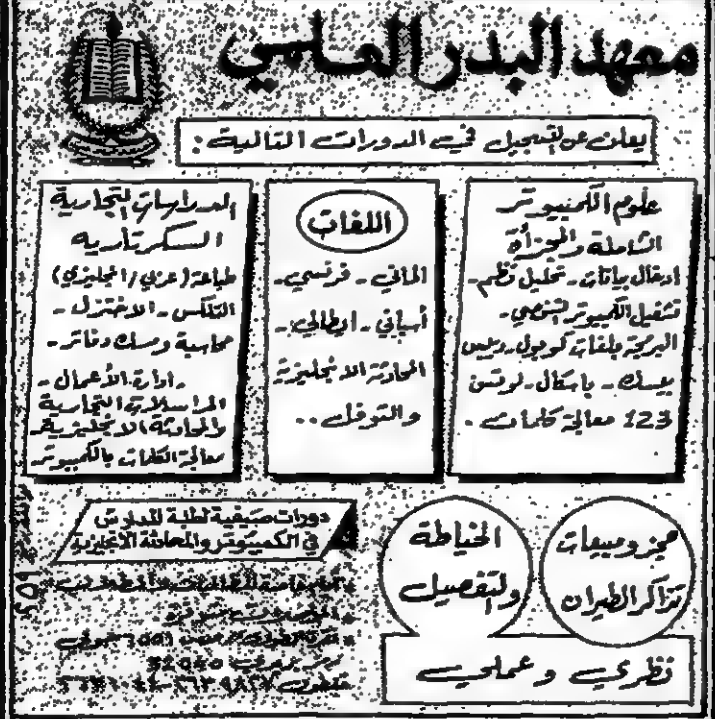 معهد البدر العلمي
يعلن عن التسجيل في الدورات التالية :
علوم الكمبيوتر
الشاملة والمجزأة
ادخال بيانات - تحليل نظم -
تشغيل الكمبيوتر الشخصي -
البرمجة بلغات كوبول -
بيسك - باسكال - لوتس
123 معالجة كلمات .
اللغات
الماني - فرنسي -
أسباني - ايطالي -
المحادثة الانجليزية
والتوفل ..
الدراسات التجارية
السكرتاريه
طباعة (عربي / انجليزي)
التلكس - الاختزل -
محاسبة ومسك دفاتر -
- ادارة الأعمال -
المراسلات التجارية
والمحادثة الانجليزية
معالجة الكلمات بالكمبيوتر
حجز ومبيعات
تذاكر الطيران
الخياطة
والتفصيل
نظري وعملي
دورات صيفية لطلبة المدارس
في الكمبيوتر والمحادثة الانجليزية
32040